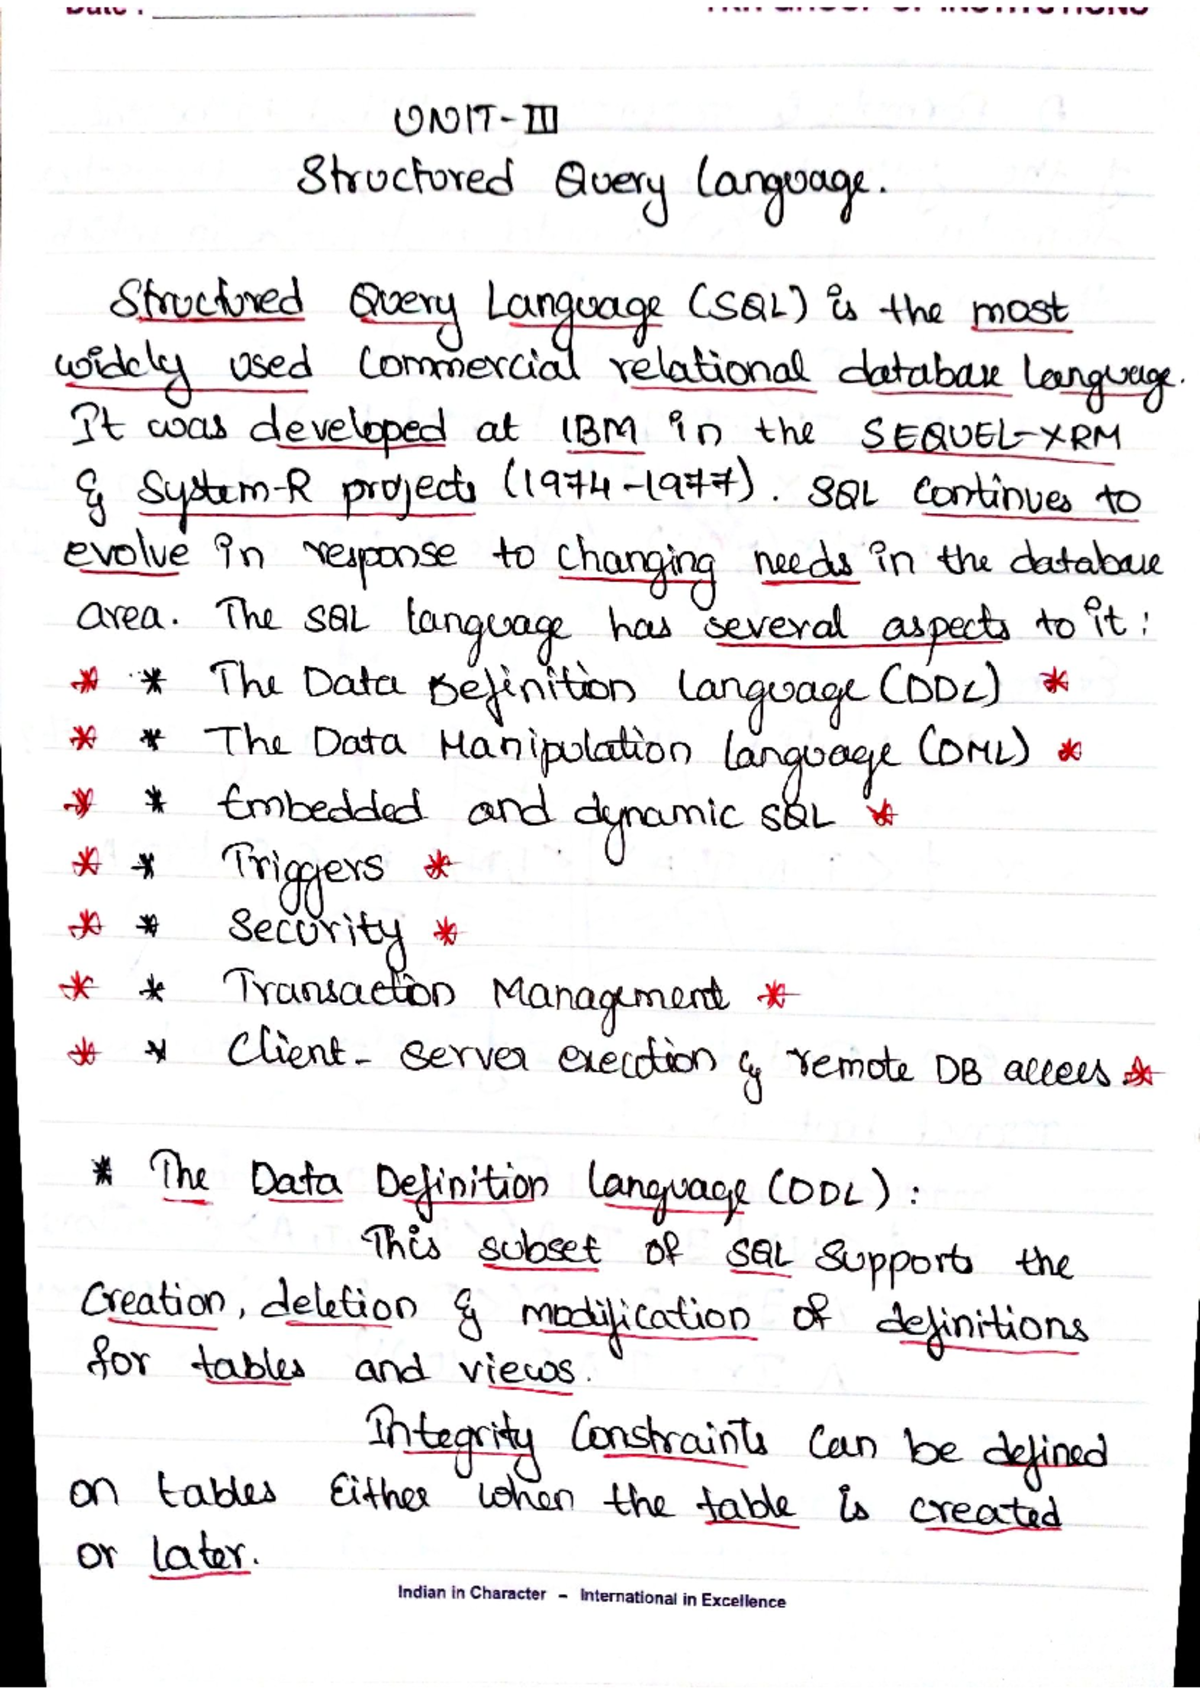 Date :
UNIT-III
Structured Query Language.
Structured Query Language (SQL) is the most
widely used Commercial relational database Language.
It was developed at IBM in the SEQUEL-XRM
& System-R projects (1974-1977). SQL Continues to
evolve in response to changing needs in the database
area. The SQL language has several aspects to it:
* * The Data Definition Language (DDL) *
* * The Data Manipulation Language (DML) *
* * Embedded and dynamic SQL *
* * Triggers *
* * Security *
* * Transaction Management *
* * Client-Server execution & remote DB access *
* The Data Definition Language (DDL):
This subset of SQL Supports the
Creation, deletion & modification of definitions
for tables and views.
Integrity Constraints Can be defined
on tables Either when the table is created
or later.
Indian in Character – International in Excellence